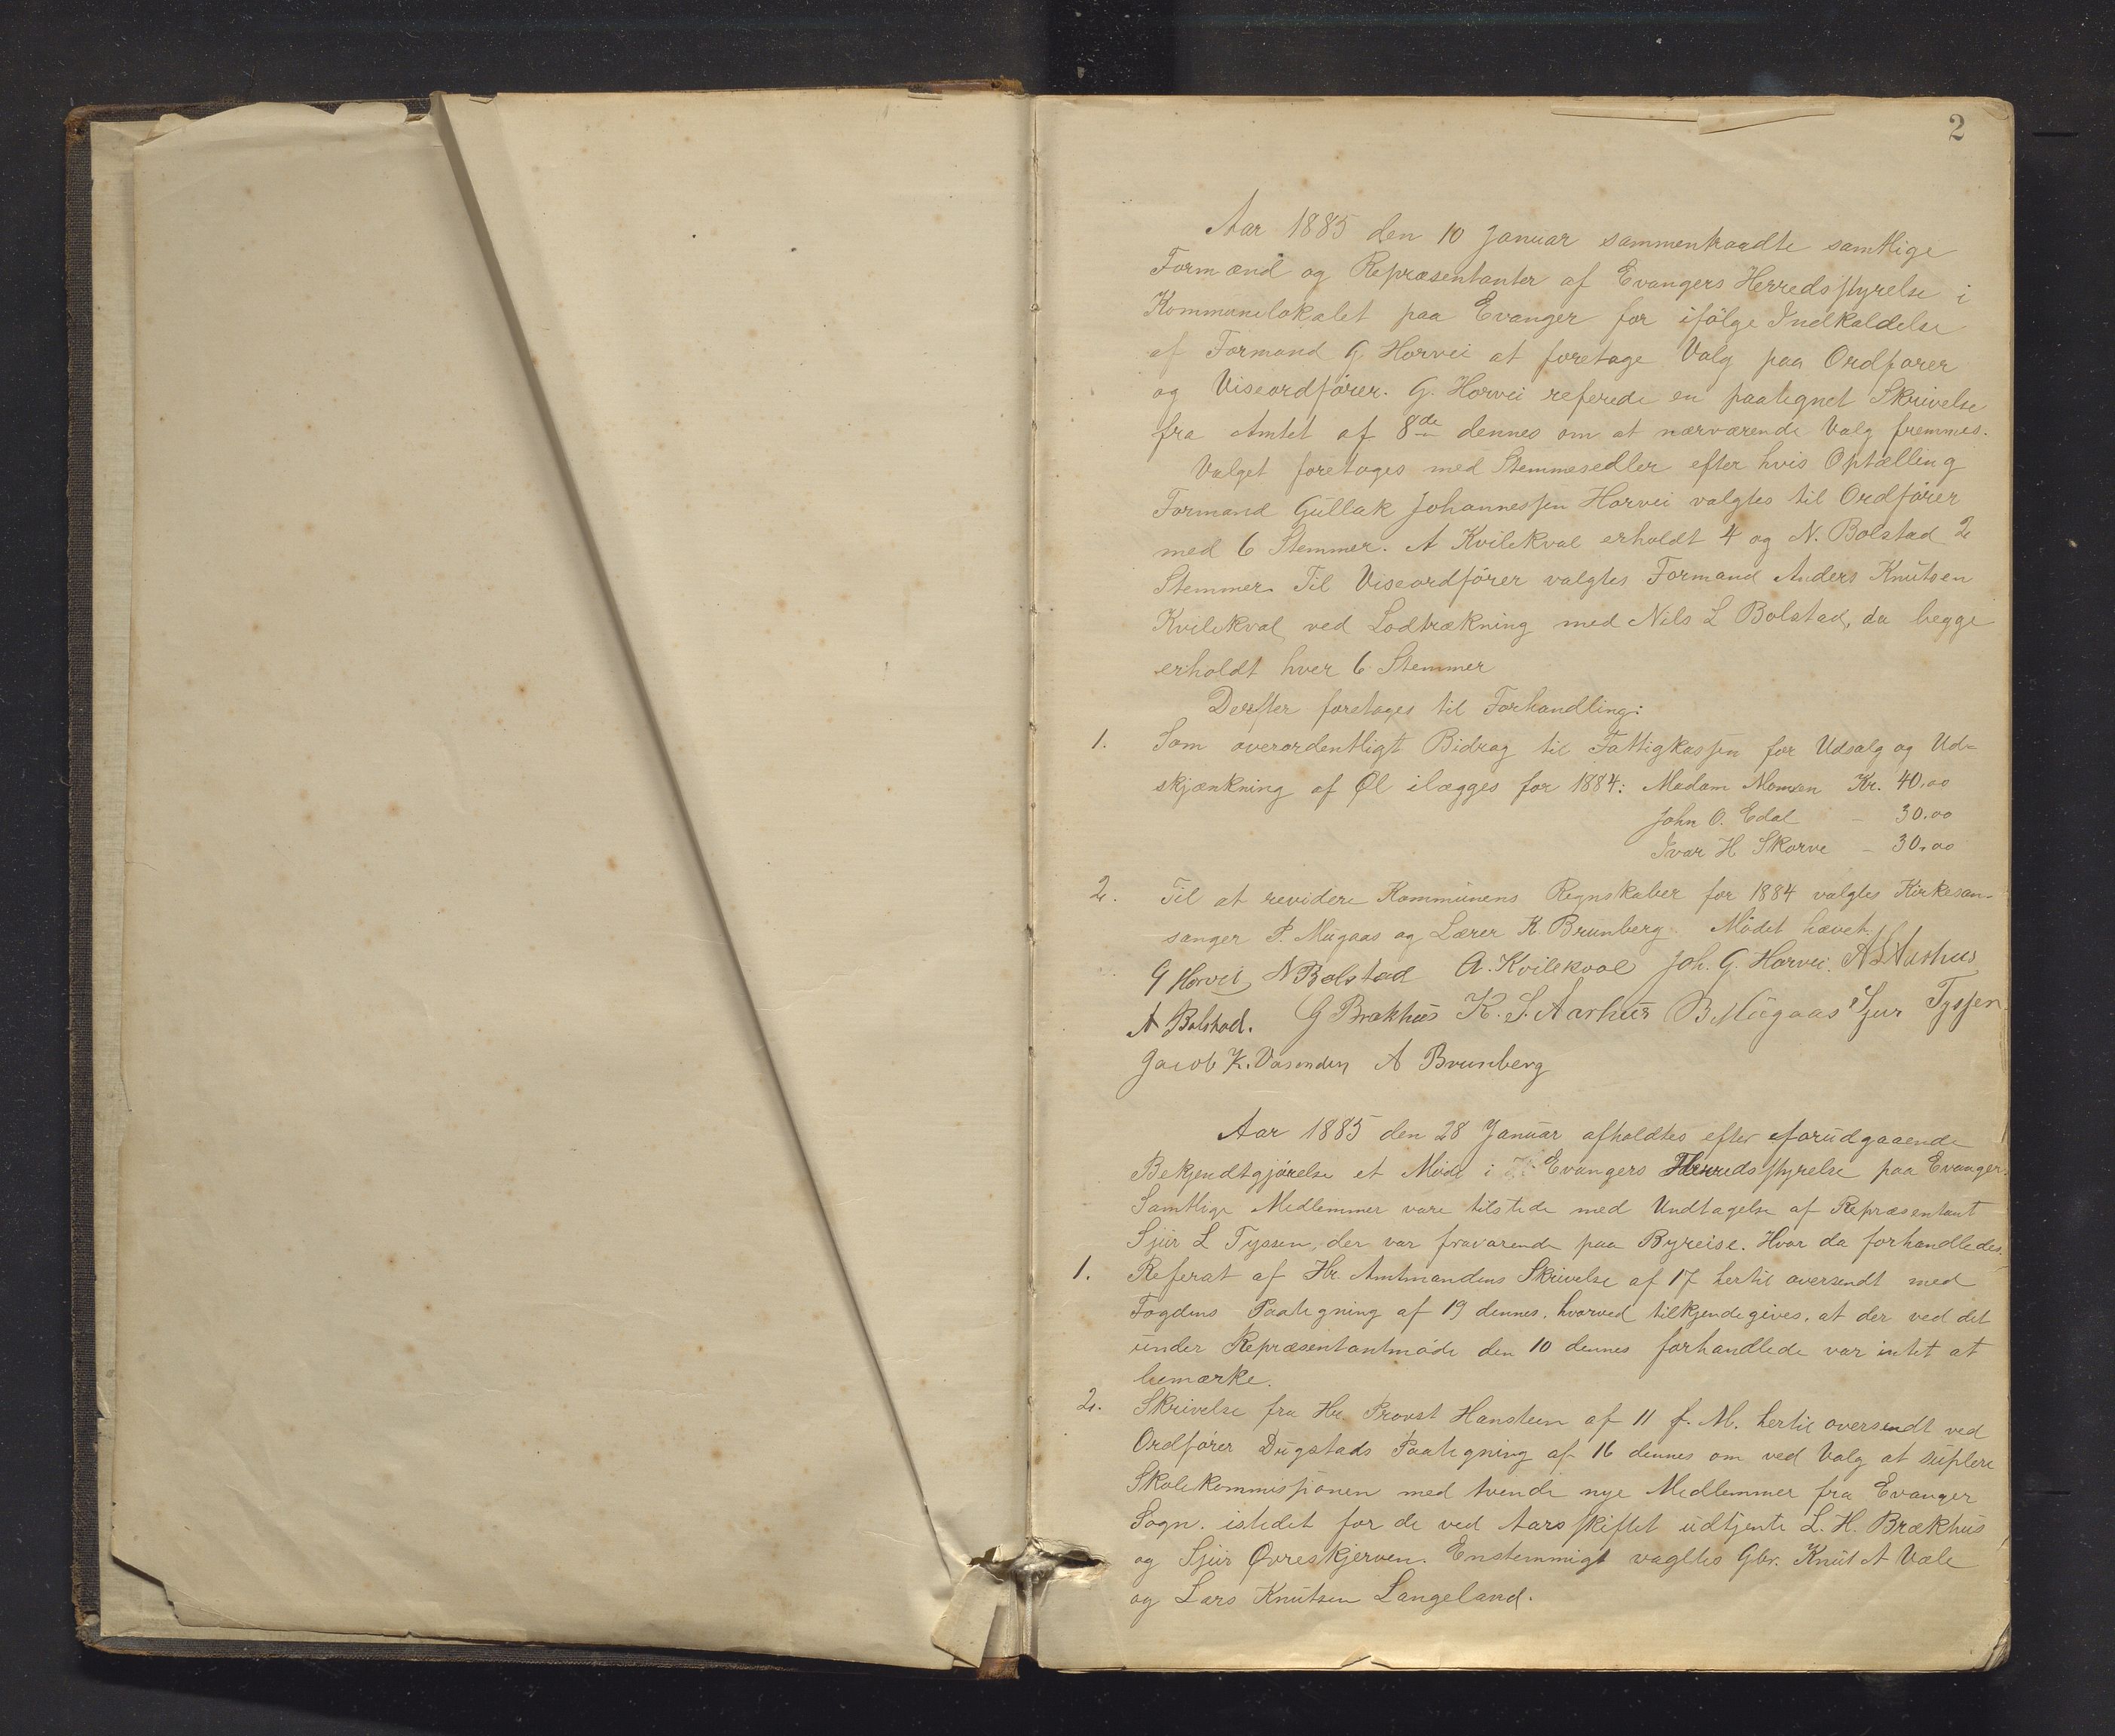 2
Aar 1885 den 10 Januar sammentraadte samtlige
Formænd og Repræsentanter af Evangers Herredsstyrelse i
Kommunelokalet paa Evanger for ifølge Indkaldelse
af Formand G. Horvei at foretage Valg paa Ordfører
og Viseordfører. G. Horvei referede en paategnet Skrivelse
fra Amtet af 8de dennes om at nærværende Valg fremmes.
Valget foretoges med Stemmesedler efter hvis Optælling
Formand Gullak Johannessen Horvei valgtes til Ordfører
med 6 Stemmer. A Kvilekval erholdt 4 og N. Bolstad 2
Stemmer. Til Viseordfører valgtes Formand Anders Knutsen
Kvilekval ved Lodtrækning med Nils L Bolstad, da begge
erholdt hver 6 Stemmer
Derefter foretoges til Forhandling:
1. Som overordentligt Bidrag til Fattigkassen for Udsalg og Ud-
skjænkning af Øl ilægges for 1884: Madam Monsen Kr. 40.00
John O. Edal - 30.00
Ivar H Skorve - 30.00
2. Til at revidere Kommunens Regnskaber for 1884 valgtes Kirkesan-
sanger P. Mugaas og Lærer K. Brunberg. Mødet hævet.
G Horvei N Bolstad A. Kvilekval Joh. G. Horvei. A Aarhus
A Bolstad. G Brækhus K. S. Aarhus B Mugaas Sjur Tyssen
Jacob K. Vasenden A Brunberg
Aar 1885 den 28 Januar afholdtes efter forudgaaende
Bekjendtgjørelse et Møde i Evangers Herredsstyrelse paa Evanger.
Samtlige Medlemmer vare tilstede med Undtagelse af Repræsentant
Sjur L Tyssen, der var fraværende paa Byreise. Hvor da forhandledes.
1. Referat af Hr. Amtmandens Skrivelse af 17 hertil oversendt med
Fogdens Paategning af 19 dennes, hvorved tilkjendegives, at der ved det
under Repræsentantmøde den 10 dennes forhandlede var intet at
bemærke.
2. Skrivelse fra Hr. Provst Hansteen af 11 f. M. hertil oversendt ved
Ordfører Dugstads Paategning af 16 dennes om ved Valg at suplere
Skolekommissionen med tvende nye Medlemmer fra Evanger
Sogn. istedet for de ved Aarsskiftet udtjente L. H. Brækhus
og Sjur Øvreskjerven. Enstemmigt vagltes Gbr. Knut A Væle
og Lars Knutsen Langeland.